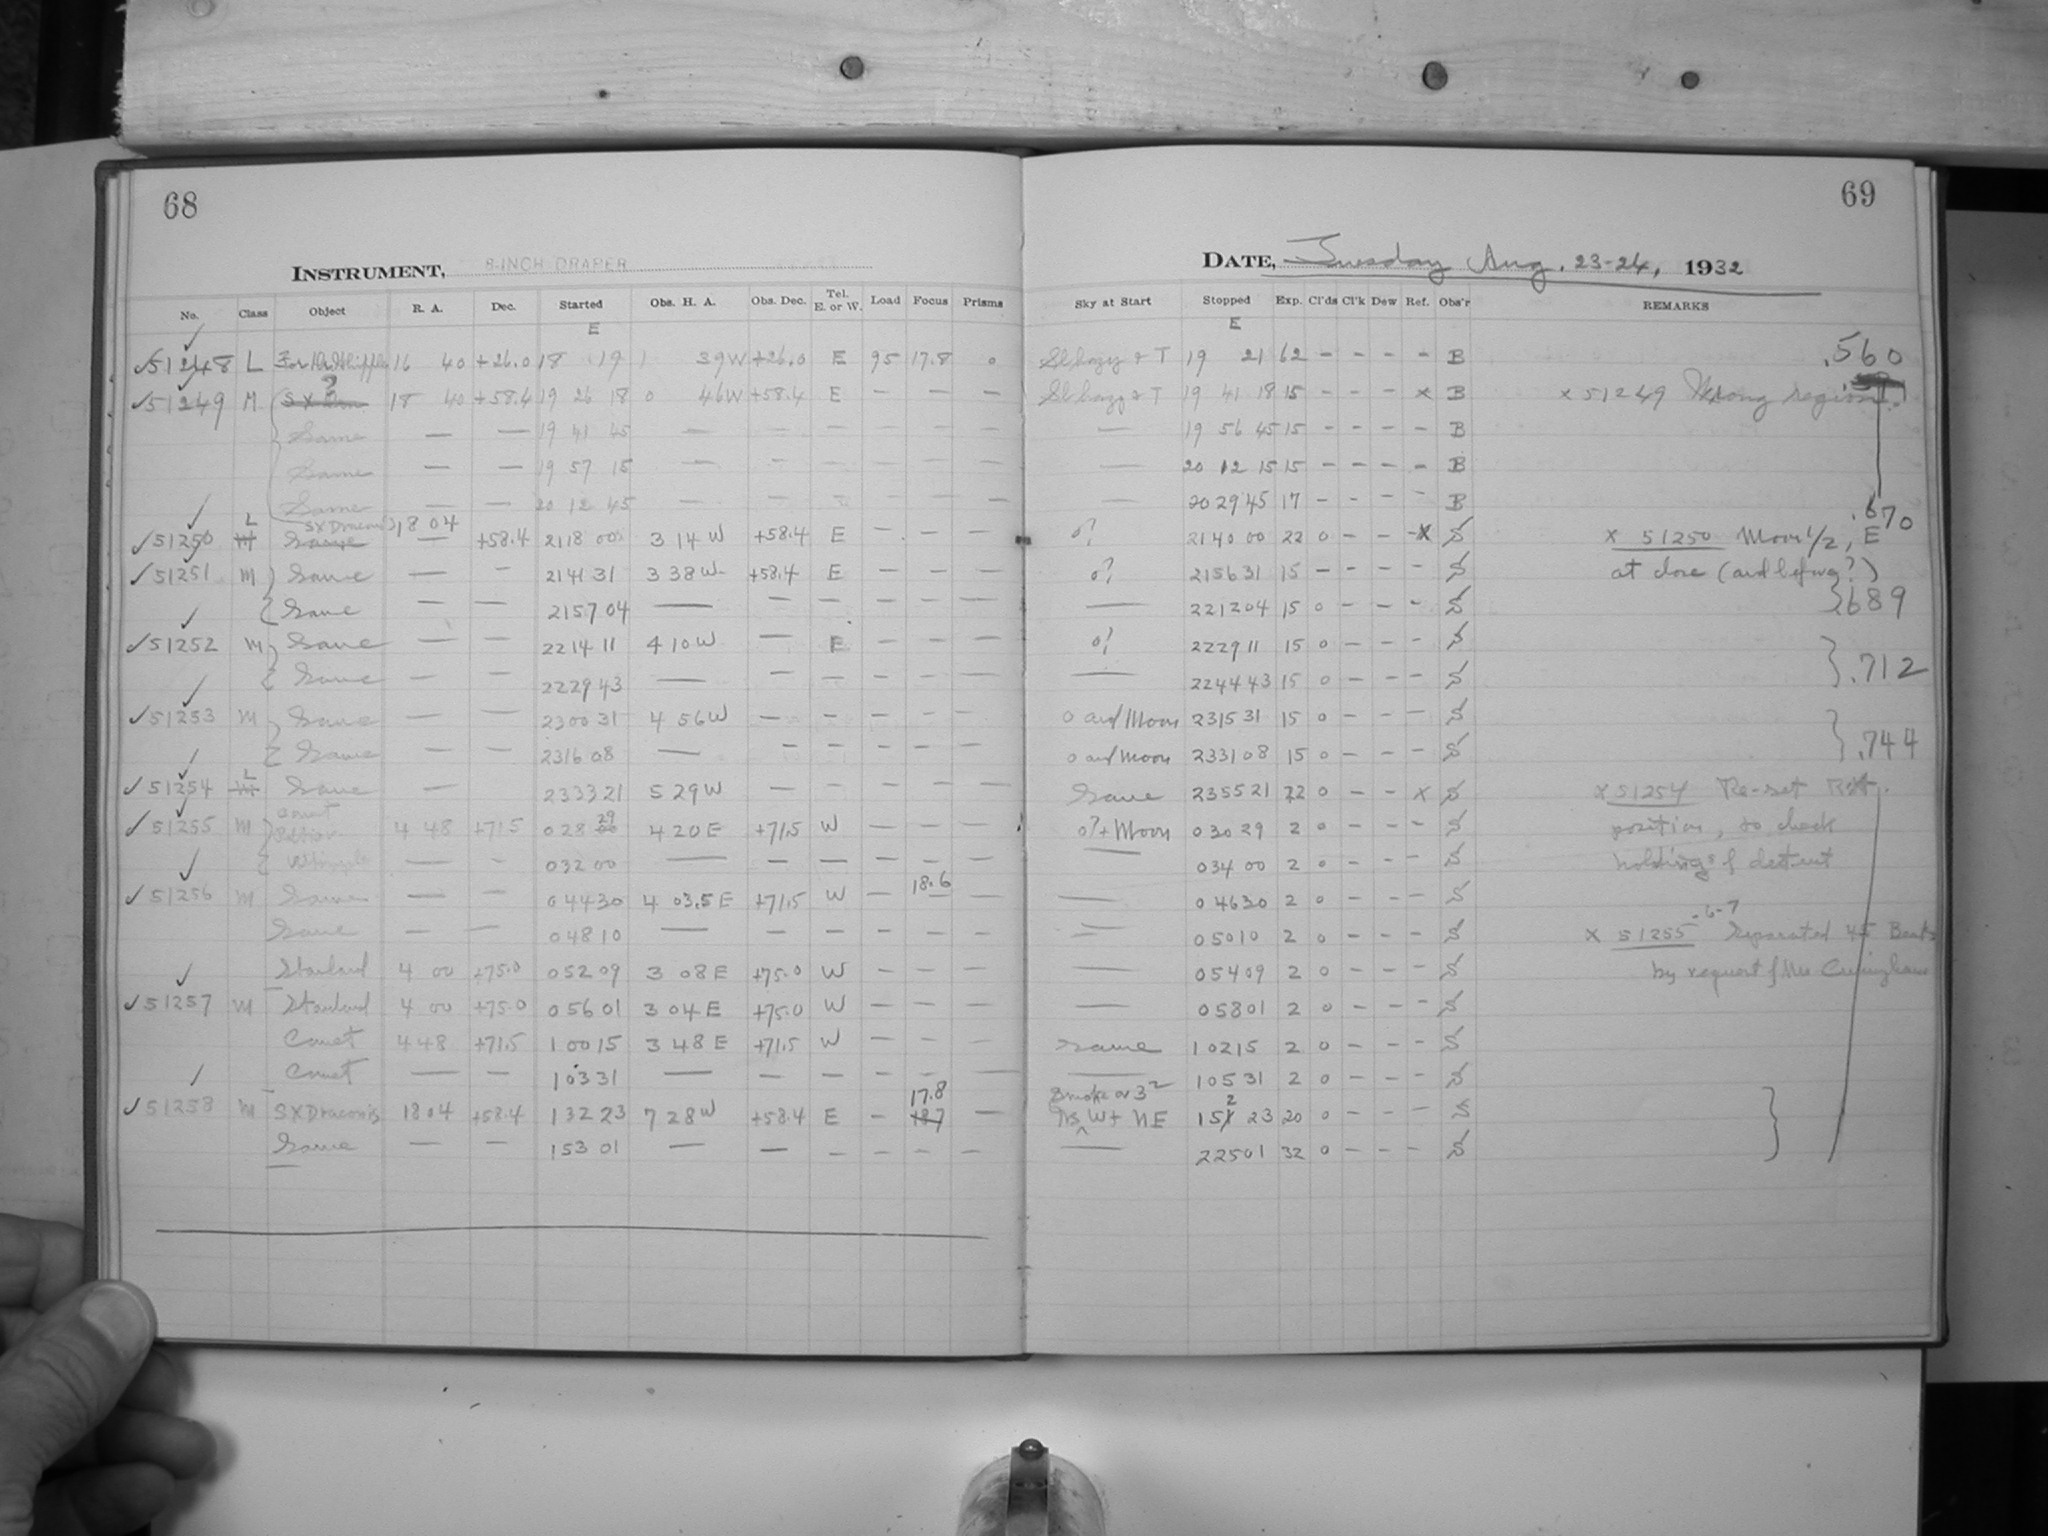 68
INSTRUMENT, 8-INCH DRAPER
No. Class Object R. A. Dec. Started Obs. H. A. Obs. Dec. Tel. E. or W. Load Focus Prisms
E
✓51248 L For Dr Whipple 16 40 +26.0 18 19 1 39W +26.0 E 95 17.8 0
?
✓51249 M S X Dra 18 40 +58.4 19 26 18 0 46W +58.4 E — — —
Same — — 19 41 45 — — — — — —
Same — — 19 57 15 — — — — — —
Same — — 20 12 45 — — — — — —
L SX Draconis 18 04
✓51250 M Same — +58.4 21 18 00 3 14 W +58.4 E — — —
✓51251 M Same — — 21 41 31 3 38 W +58.4 E — — —
Same — — 21 57 04 — — — — — —
✓51252 M Same — — 22 14 11 4 10 W — E — — —
Same — — 22 29 43 — — — — — —
✓51253 M Same — — 23 00 31 4 56 W — — — — —
Same — — 23 16 08 — — — — — —
L
✓51254 M Same — — 23 33 21 5 29 W — — — — —
Comet 29
✓51255 M Peltier 4 48 +71.5 0 28 00 4 20 E +71.5 W — — —
Whipple — — 0 32 00 — — — — — —
18.6
✓51256 M Same — — 0 44 30 4 03.5 E +71.5 W — — —
Same — — 0 48 10 — — — — — —
Standard 4 00 +75.0 0 52 09 3 08 E +75.0 W — — —
✓51257 M Standard 4 00 +75.0 0 56 01 3 04 E +75.0 W — — —
Comet 4 48 +71.5 1 00 15 3 48 E +71.5 W — — —
Comet — — 1 03 31 — — — — — —
17.8
✓51258 M S X Draconis 18 04 +58.4 1 32 23 7 28 W +58.4 E — 18.7 —
Same — — 1 53 01 — — — — — —
69
DATE, Tuesday Aug. 23-24, 1932
Sky at Start Stopped Exp. Cl'ds Cl'k Dew Ref. Obs'r REMARKS
E
Sl hazy & T 19 21 62 — — — — B .560
Sl hazy & T 19 41 18 15 — — — x B x 51249 Wrong region.
— 19 56 45 15 — — — — B
— 20 12 15 15 — — — — B
— 20 29 45 17 — — — — B
.670
0? 21 40 00 22 0 — — x S x 51250 Moon 1/2, E
0? 21 56 31 15 — — — — S at close (and before?)
— 22 12 04 15 0 — — — S }.689
0? 22 29 11 15 0 — — — S
— 22 44 43 15 0 — — — S } .712
0 and Moon 23 15 31 15 0 — — — S
0 and Moon 23 31 08 15 0 — — — S } .744
Same 23 55 21 22 0 — — x S x 51254 Re-set
0? + Moon 0 30 29 2 0 — — — S position, to check
— 0 34 00 2 0 — — — S holding of detent
— 0 46 30 2 0 — — — S
— 0 50 10 2 0 — — — S x 51255 -6-7 Separated 45 Beats
— 0 54 09 2 0 — — — S by request of Mrs Cunningham
— 0 58 01 2 0 — — — S
Same 1 02 15 2 0 — — — S
— 1 05 31 2 0 — — — S
Smoke or 3²
W + NE 1 52 23 20 0 — — — S
— 2 25 01 32 0 — — — S